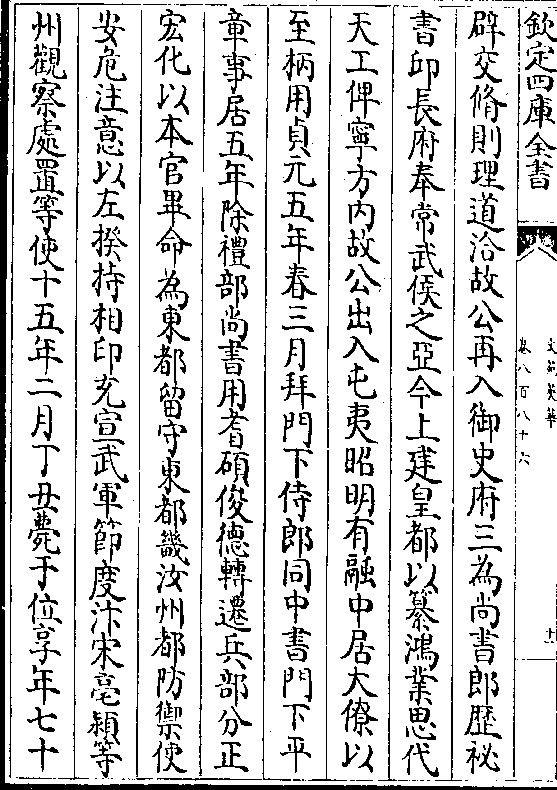 欽定四庫全書
文苑英華
卷八百八十六
十一
辟交脩則理道洽故公再入御史府三為尚書郎歴祕
書卭長府奉常武候之亞今上建皇都以纂鴻業思代
天工俾寧方内故公出入屯夷昭明有融中居大僚以
至柄用貞元五年春三月拜門下侍郎同中書門下平
章事居五年除禮部尚書用耆碩俊徳轉遷兵部分正
宏化以本官畢命為東都留守東都畿汝州都防禦使
安危注意以左揆持相印充宣武軍節度汴宋亳潁等
州觀察處置等使十五年二月丁丑薨于位享年七十